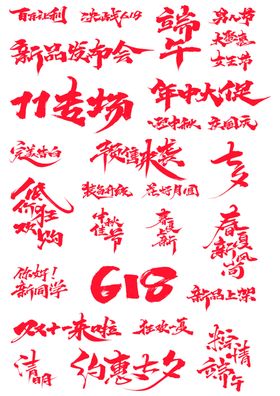 百万让利
决战618
端午
男人节
大聚惠
女王节
新品发布会
11专场
年中大促
迎中秋
庆国元
完美告白
预售来袭
七夕
低价狂欢购
装备升级
花好月圆
中秋佳节
春夏上新
春夏新风尚
你好！
新同学
618
新品上架
双十一来啦
狂欢一夏
粽情端午
清明
约惠七夕